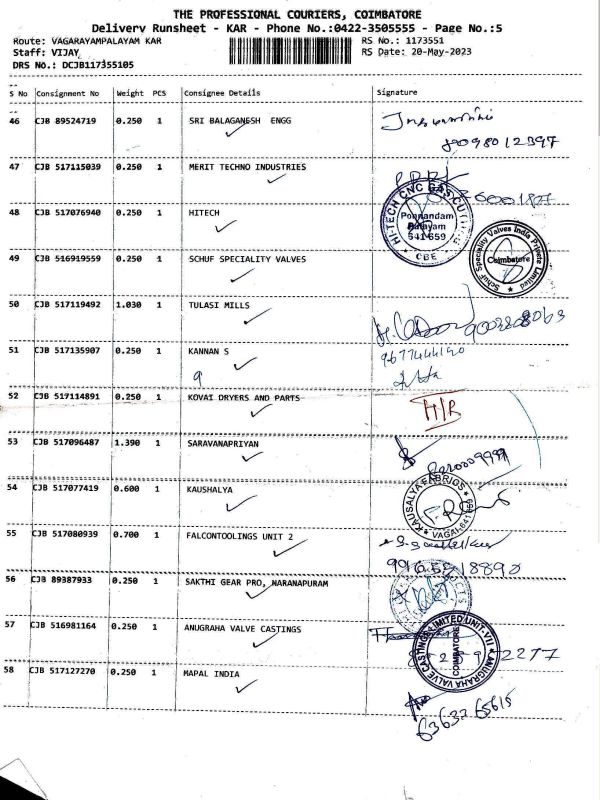 THE PROFESSIONAL COURIERS, COIMBATORE
Delivery Runsheet - KAR - Phone No.:0422-3505555 - Page No.:5
Route: VAGARAYAMPALAYAM KAR RS No.: 1173551
Staff: VIJAY RS Date: 20-May-2023
DRS No.: DCJB117355105
S No Consignment No Weight PCS Consignee Details Signature
46 CJB 89524719 0.250 1 SRI BALAGANESH ENGG
8098012397
47 CJB 517115039 0.250 1 MERIT TECHNO INDUSTRIES
48 CJB 517076940 0.250 1 HITECH
HI-TECH CNC GAS CUTTING
Ponnandam
Palayam
641 659
CBE
49 CJB 516919559 0.250 1 SCHUF SPECIALITY VALVES
Schuf Speciality Valves India Private Limited
Coimbatore
50 CJB 517119492 1.030 1 TULASI MILLS
51 CJB 517135907 0.250 1 KANNAN S
9
9677444190
52 CJB 517114891 0.250 1 KOVAI DRYERS AND PARTS
H/R
53 CJB 517096487 1.390 1 SARAVANAPRIYAN
54 CJB 517077419 0.600 1 KAUSHALYA
KAUSALYA FABRIOS
VAGAI-641 659
55 CJB 517080939 0.700 1 FALCONTOOLINGS UNIT 2
56 CJB 89387933 0.250 1 SAKTHI GEAR PRO, NARANAPURAM
57 CJB 516981164 0.250 1 ANUGRAHA VALVE CASTINGS
ANUGRAHA VALVE CASTINGS LIMITED UNIT-VII
COIMBATORE
58 CJB 517127270 0.250 1 MAPAL INDIA